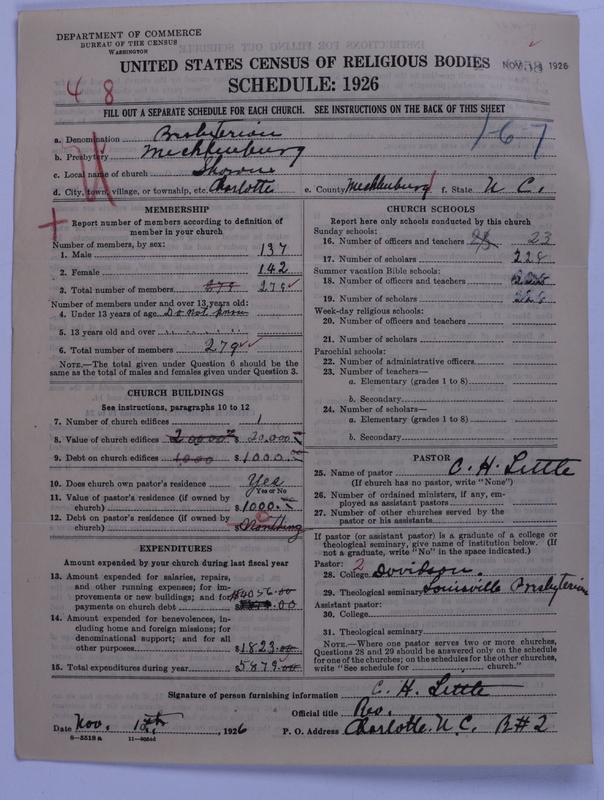 DEPARTMENT OF COMMERCE
BUREAU OF THE CENSUS
WASHINGTON
UNITED STATES CENSUS OF RELIGIOUS BODIES
NOV 1926
SCHEDULE: 1926
4 8
FILL OUT A SEPARATE SCHEDULE FOR EACH CHURCH. SEE INSTRUCTIONS ON THE BACK OF THIS SHEET
167
a. Denomination Presbyterian
b. Presbytery Mecklenburg
c. Local name of church
d. City, town, village, or township, etc. Charlotte e. County Mecklenburg f. State N C.
MEMBERSHIP
Report number of members according to definition of
member in your church
Number of members, by sex:
1. Male 137
2. Female 142
3. Total number of members 279 279
Number of members under and over 13 years old:
4. Under 13 years of age Do not know
5. 13 years old and over
6. Total number of members 279
NOTE.—The total given under Question 6 should be
same as the total of males and females given under Question 3.
CHURCH BUILDINGS
See instructions, paragraphs 10 to 12
7. Number of church edifices 1
8. Value of church edifices 20000 $ 20,000
9. Debt on church edifices 1000 $ 1000
10. Does church own pastor's residence Yes
Yes or No
11. Value of pastor's residence (if owned by
church) $ 1000
12. Debt on pastor's residence (if owned by
church) $ Nothing
EXPENDITURES
Amount expended by your church during last fiscal year
13. Amount expended for salaries, repairs,
and other running expenses; for im-
provements or new buildings; and for
payments on church debt $4056.00
14. Amount expended for benevolences, in-
cluding home and foreign missions; for
denominational support; and for all
other purposes $1823.00
15. Total expenditures during year $5879.00
CHURCH SCHOOLS
Report here only schools conducted by this church
Sunday schools:
16. Number of officers and teachers 23
17. Number of scholars 228
Summer vacation Bible schools:
18. Number of officers and teachers
19. Number of scholars
Week-day religious schools:
20. Number of officers and teachers
21. Number of scholars
Parochial schools:
22. Number of administrative officers
23. Number of teachers—
a. Elementary (grades 1 to 8)
b. Secondary
24. Number of scholars—
a. Elementary (grades 1 to 8)
b. Secondary
PASTOR
25. Name of pastor C. H. Little
(If church has no pastor, write "None")
26. Number of ordained ministers, if any, em-
ployed as assistant pastors
27. Number of other churches served by the
pastor or his assistants
If pastor (or assistant pastor) is a graduate of a college or
theological seminary, give name of institution below. (If
not a graduate, write "No" in the space indicated.)
Pastor: 2
28. College Davidson
29. Theological seminary Louisville Presbyterian
Assistant pastor:
30. College
31. Theological seminary
NOTE.—Where one pastor serves two or more churches,
Questions 28 and 29 should be answered only on the schedule
for one of the churches; on the schedules for the other churches,
write "See schedule for church."
Signature of person furnishing information C. H. Little
Official title Rev.
Date Nov. , 1926 P. O. Address Charlotte, N.C. R#2
8—5518a